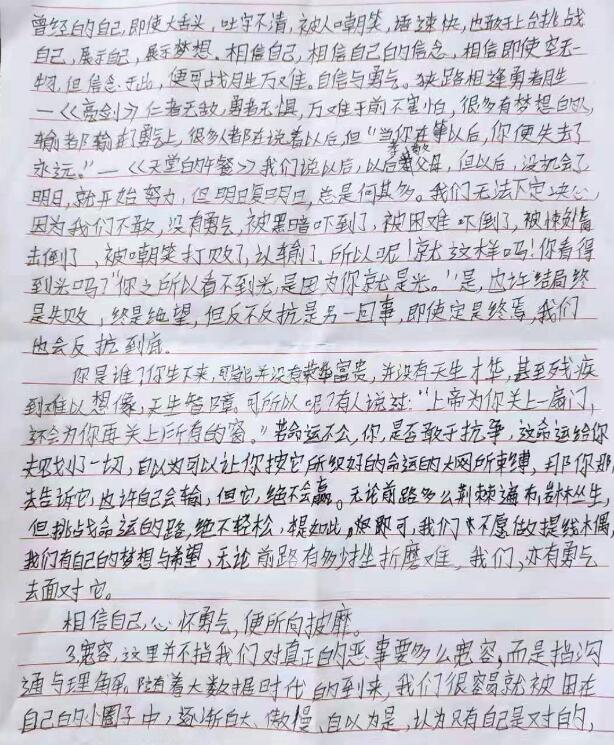 曾经的自己,即使大舌头,吐字不清,被人嘲笑,语速快,也敢于上台挑战
自己,展示自己,展示梦想。相信自己,相信自己的信念,相信即使空无一
物,但信念于此,便可战胜万难。自信与勇气。狭路相逢勇者胜
—《亮剑》仁者无敌,勇者无惧,万难于前不害怕,很多有梦想的人,
输都输在了勇气上,很多人都在说着以后,但“当你在等以后,你便失去了
永远。”—《天堂的午餐》我们说以后,以后孝敬父母,但以后,没机会了
明日,就开始努力,但明日复明日,总是何其多。我们无法下定决心,
因为我们不敢,没有勇气,被黑暗吓到了,被困难吓倒了,被惊涛
击倒了,被嘲笑打败了,认输了。所以呢!就这样吗!你看得
到光吗?“你之所以看不到光,是因为你就是光。”是,也许结局终
是失败,终是绝望,但反不反抗是另一回事,即使定是终焉,我们
也会反抗到底。
你是谁?你生下来,可能并没有荣华富贵,并没有天生才华,甚至残疾
到难以想像,天生智障。可所以呢?有人说过:“上帝为你关上一扇门,
还会为你再关上所有的窗。”若命运不公,你是否敢于抗争,这命运给你
规划了一切,自以为可以让你按它所织好的命运的大网所束缚,那你那
去告诉它,也许自己会输,但它,绝不会赢。无论前路多么荆棘遍布,丛生,
但挑战命运的路,绝不轻松,提如此,即可,我们不愿做提线木偶,
我们有自己的梦想与希望,无论前路有多少挫折磨难,我们,亦有勇气
去面对它。
相信自己,心怀勇气,便所向披靡。
3.宽容,这里并不指我们对真正的恶事要多么宽容,而是指沟
通与理解,随着大数据时代的到来,我们很容易就被困在
自己的小圈子中,逐渐自大、傲慢、自以为是,认为只有自己是对的,